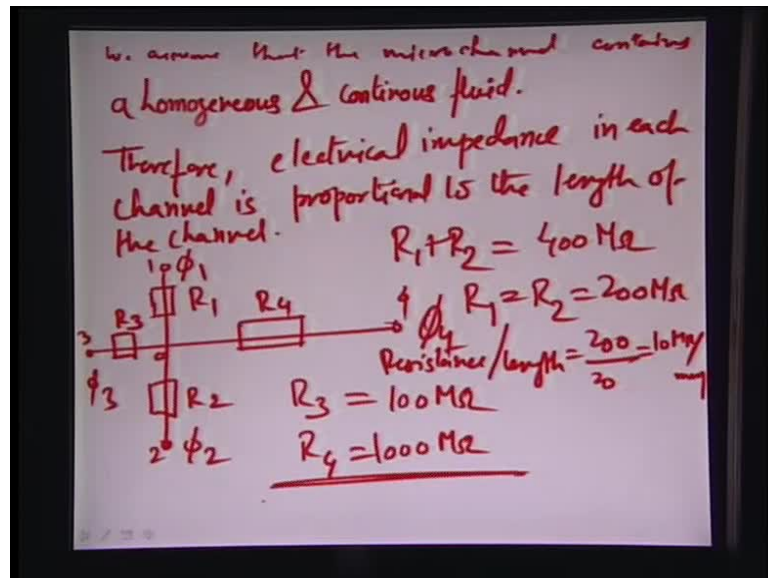 We assume that the microchannel contains
a homogeneous & continous fluid.
Therefore, electrical impedance in each
channel is proportional to the length of
the channel.
R1+R2 = 400 MΩ
1 ϕ1
R1 R4 R1 = R2 = 200MΩ
R3 4 ϕ4
3 Resistance/length = 200/20 = 10MΩ/
ϕ3 R2 R3 = 100MΩ
2 ϕ2 R4 = 1000MΩ